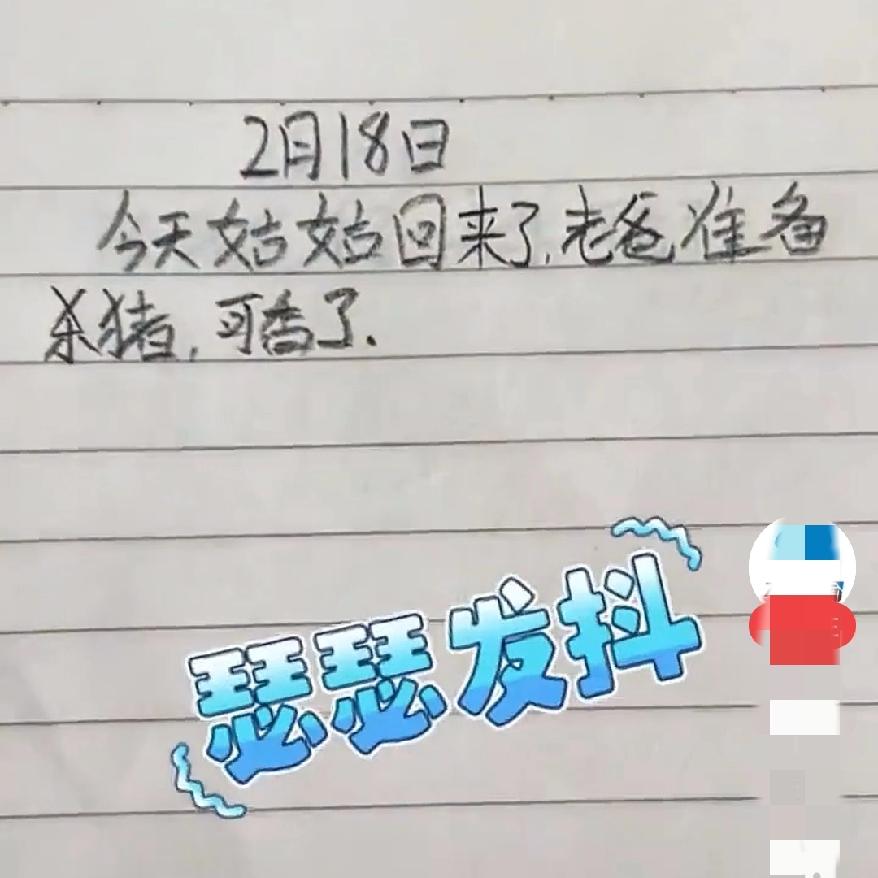 2月18日
今天姑姑回来了,老爸准备
杀猪,可香了.
瑟瑟发抖